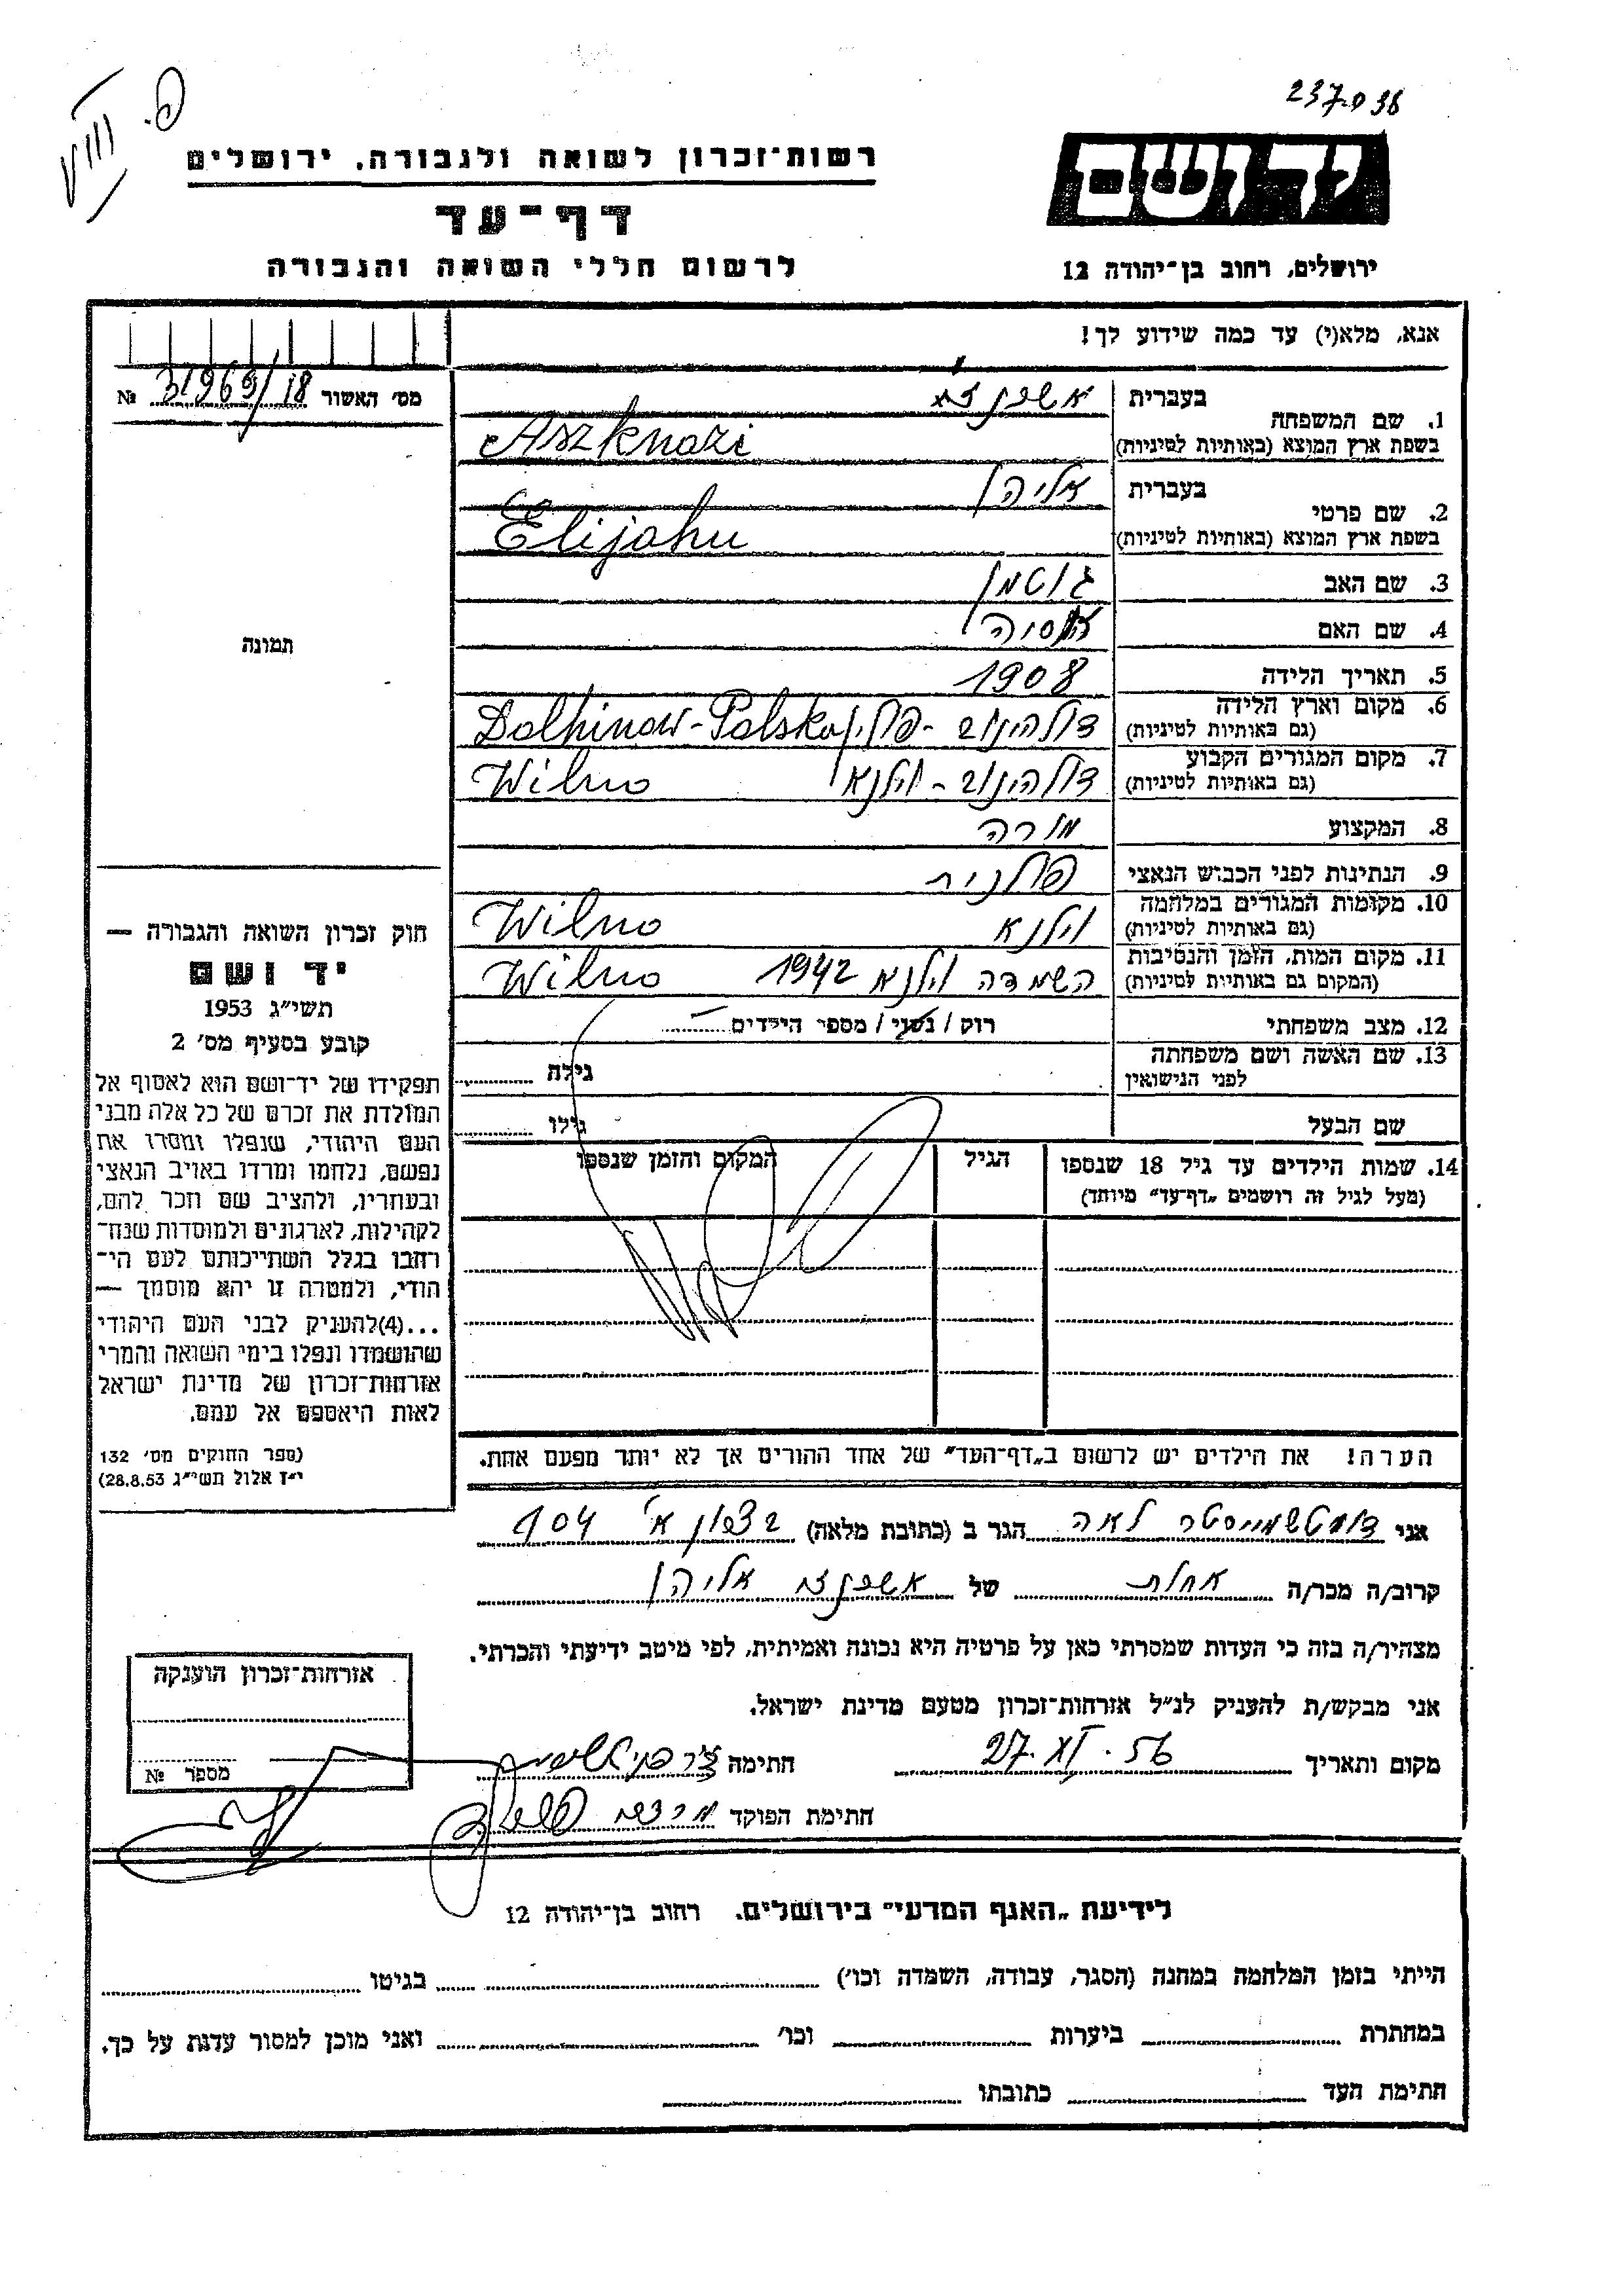 237038
פ. VIII/א
יד ושם
רשות־זכרון לשואה ולגבורה, ירושלים
דף־עד
ירושלים, רחוב בן־יהודה 12
לרשום חללי השואה והגבורה
אנא, מלא(י) עד כמה שידוע לך!
מס׳ האשור № 31969/18
1. שם המשפחה
בעברית אשכנזי
בשפת ארץ המוצא (באותיות לטיניות) Aszknazi
2. שם פרטי
בעברית אליהו
בשפת ארץ המוצא (באותיות לטיניות) Elijahu
3. שם האב גוטמן
4. שם האם
5. תאריך הלידה 1908
6. מקום וארץ הלידה
(גם באותיות לטיניות) דולהינוב - פולין Dolhinow-Polska
7. מקום המגורים הקבוע
(גם באותיות לטיניות) דולהינוב - וילנא Wilno
8. המקצוע מורה
9. הנתינות לפני הכבוש הנאצי פולנית
10. מקומות המגורים במלחמה
(גם באותיות לטיניות) וילנא Wilno
11. מקום המות, הזמן והנסיבות
(המקום גם באותיות לטיניות) השמדה וילנא 1942 Wilno
12. מצב משפחתי רוק / נשוי / מספר הילדים
13. שם האשה ושם משפחתה
לפני הנישואין
גילה
שם הבעל גילו
14. שמות הילדים עד גיל 18 שנספו הגיל המקום והזמן שנספו
(מעל לגיל זה רושמים „דף־עד״ מיוחד)
הערה! את הילדים יש לרשום ב„דף־העד״ של אחד ההורים אך לא יותר מפעם אחת.
תמונה
חוק זכרון השואה והגבורה —
יד ושם
תשי״ג 1953
קובע בסעיף מס׳ 2
תפקידו של יד־ושם הוא לאסוף אל
המולדת את זכרם של כל אלה מבני
העם היהודי, שנפלו ומסרו את
נפשם, נלחמו ומרדו באויב הנאצי
ובעוזריו, ולהציב שם וזכר להם,
לקהילות, לארגונים ולמוסדות שנח־
רחבו בגלל השתייכותם לעם הי־
הודי, ולמטרה זו יהא מוסמך —
...(4)להעניק לבני העם היהודי
שהושמדו ונפלו בימי השואה והמרי
אזרחות־זכרון של מדינת ישראל
לאות היאספם אל עמם.
(ספר החוקים מס׳ 132
י״ז אלול תשי״ג 28.8.53)
אני דוקטשמייסטר לאה הגר ב (כתובת מלאה) בצפון א׳ 404
קרוב/ה מכר/ה אחות של אשכנזי אליהו
מצהיר/ה בזה כי העדות שמסרתי כאן על פרטיה היא נכונה ואמיתית, לפי מיטב ידיעתי והכרתי.
אני מבקש/ת להעניק לנ״ל אזרחות־זכרון מטעם מדינת ישראל.
מקום ותאריך 27. XI. 56 חתימה
חתימת הפוקד
אזרחות־זכרון הוענקה
מספר №
לידיעת „האגף המדעי״ בירושלים. רחוב בן־יהודה 12
הייתי בזמן המלחמה במחנה (הסגר, עבודה, השמדה וכו׳) בגיטו
במחתרת ביערות וכו׳ ואני מוכן למסור עדות על כך.
חתימת העד כתובתו